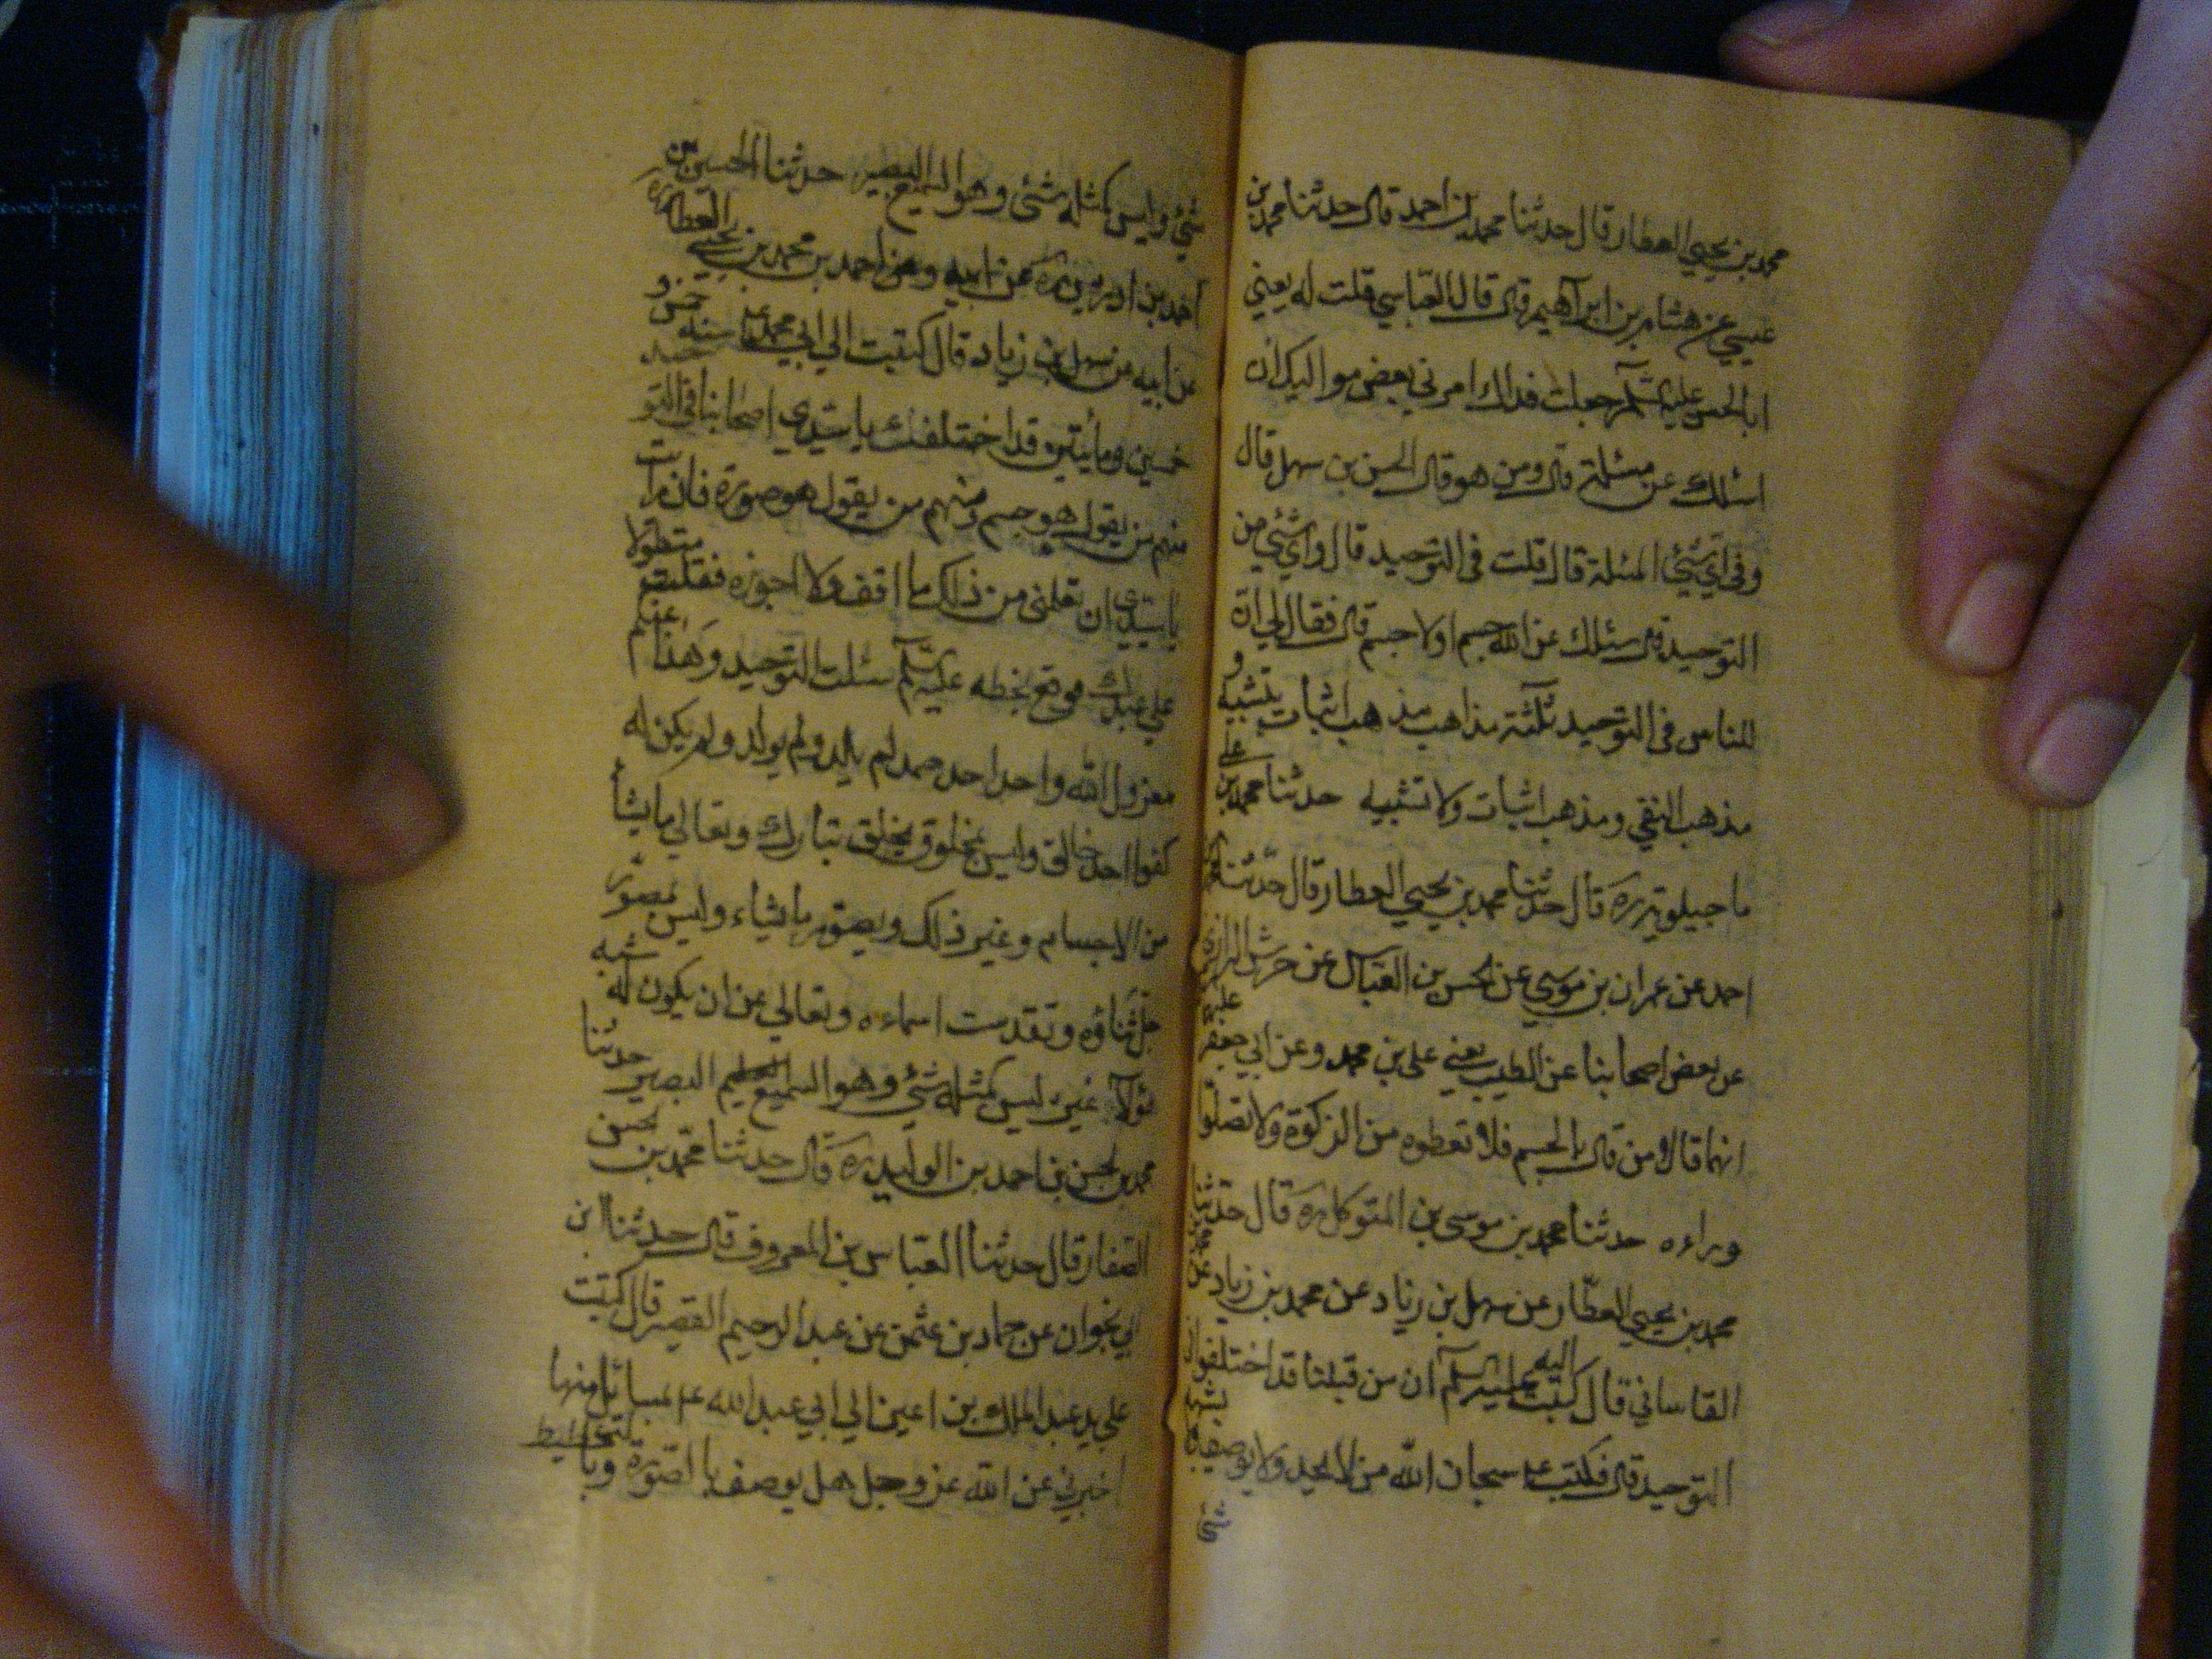 محمد بن يحيى العطار قال حدثنا محمد بن احمد قال حدثنا محمد بن
عيسي عن هشام بن ابراهيم قال قال العباسي قلت له يعني
ابا الحسن عليه السلم جعلت فداك امرني بعض مواليك ان
اسئلك عن مسئلة قال ومن هو قال الحسن بن سهل قال
وفي اي شئي المسئلة قال قلت في التوحيد قال واي شئي من
التوحيد قال يسئلك عن الله جسم او لا جسم قال فقال لي ان
للناس في التوحيد ثلثة مذاهب مذهب اثبات بتشبيه و
مذهب النفي ومذهب اثبات ولا تشبيه حدثنا محمد بن علي
ماجيلويه ره قال حدثنا محمد بن يحيي العطار قال حدثنا محمد بن
احمد عن عمران بن موسي عن الحسن بن العباس عن حريش الرازي
عن بعض اصحابنا عن الطيب يعني علي بن محمد وعن ابي جعفر عليهما
انهما قالا من قال بالجسم فلا تعطوه من الزكوة ولا تصلوا
وراءه حدثنا محمد بن موسى بن المتوكل ره قال حدثنا
محمد بن يحيي العطار عن سهل بن زياد عن محمد بن زياد عن
القاساني قال كتبت اليه عليه السلم ان من قبلنا قد اختلفوا في
التوحيد قال فكتب ع سبحان الله من لا يحد ولا يوصف لا يشبهه
شئ
شئ وليس كمثله شئ وهو السميع البصير حدثنا الحسين بن
احمد بن ادريس ره عن ابيه وعن احمد بن محمد بن يحيى العطار ره
عن ابيه عن سهل بن زياد قال كتبت الي ابي محمد ع سنة خمس و
خمسين ومأيتين قد اختلف يا سيدي اصحابنا في التوحيد
منهم من يقول هو جسم ومنهم من يقول هو صورة فان رايت
يا سيدي ان تعلمني من ذلك ما اقف ولا اجوزه فعلت متطولا
علي عبدك فوقع بخطه عليه السلم سئلت التوحيد وهذا عنكم
معزول الله واحد احد صمد لم يلد ولم يولد ولم يكن له
كفوا احد خالق وليس بمخلوق يخلق تبارك وتعالي ما يشأ
من الاجسام وغير ذلك ويصور ما يشاء وليس بمصور
جل ثناؤه وتقدست اسماءه وتعالي عن ان يكون له شبه
هو لا غيره ليس كمثله شئي وهو السميع البصير حدثنا
محمد بن الحسن بن احمد بن الوليد ره قال حدثنا محمد بن الحسن
الصفار قال حدثنا العباس بن المعروف قال حدثنا ابن
ابي نجران عن حماد بن عثمن عن عبد الرحيم القصير قال كتبت
علي يد عبد الملك بن اعين الي ابي عبد الله ع بمسائل منها
اخبرني عن الله عز وجل هل يوصف بالصورة وبالتخطيط